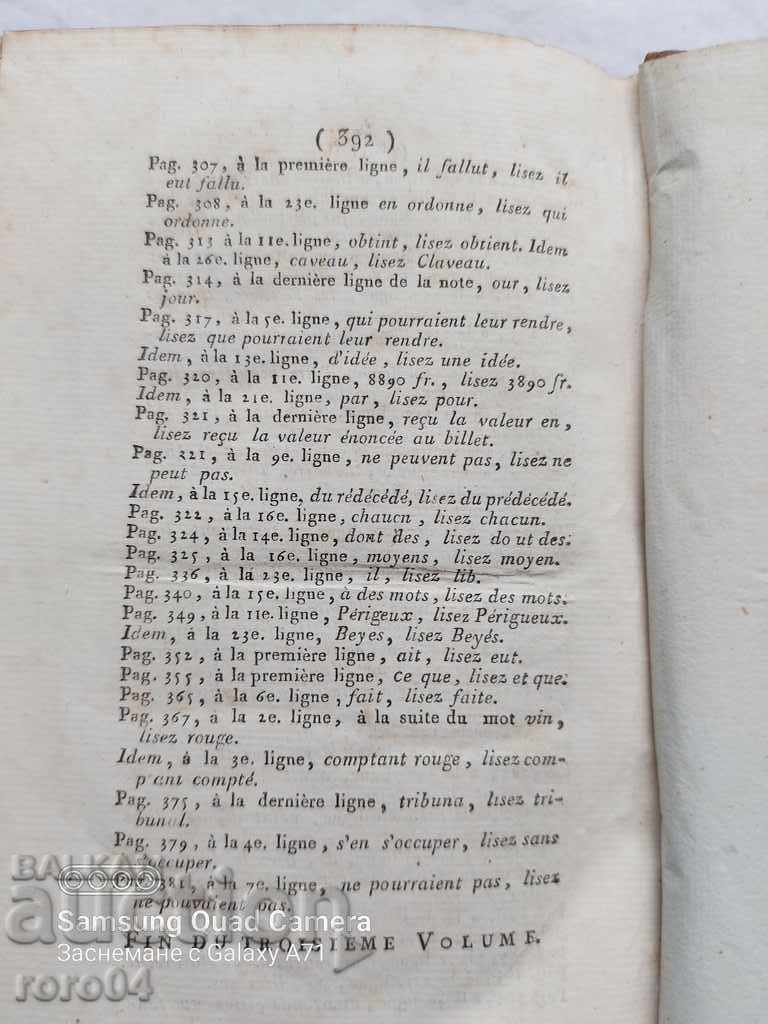 ( 392 )
Pag. 307, à la première ligne, il fallut, lisez il
eut fallu.
Pag. 308, à la 23e. ligne en ordonne, lisez qui
ordonne.
Pag. 313 à la 11e. ligne, obtint, lisez obtient. Idem
à la 26e. ligne, caveau, lisez Claveau.
Pag. 314, à la dernière ligne de la note, our, lisez
jour.
Pag. 317, à la 5e. ligne, qui pourraient leur rendre,
lisez que pourraient leur rendre.
Idem, à la 13e. ligne, d'idée, lisez une idée.
Pag. 320, à la 11e. ligne, 8890 fr., lisez 3890 fr.
Idem, à la 21e. ligne, par, lisez pour.
Pag. 321, à la dernière ligne, reçu la valeur en,
lisez reçu la valeur énoncée au billet.
Pag. 321, à la 9e. ligne, ne peuvent pas, lisez ne
peut pas.
Idem, à la 15e. ligne, du rédécédé, lisez du prédécédé.
Pag. 322, à la 16e. ligne, chaucn, lisez chacun.
Pag. 324, à la 14e. ligne, dont des, lisez do ut des.
Pag. 325, à la 16e. ligne, moyens, lisez moyen.
Pag. 336, à la 23e. ligne, il, lisez lib.
Pag. 340, à la 15e. ligne, à des mots, lisez des mots.
Pag. 349, à la 11e. ligne, Périgeux, lisez Périgueux.
Idem, à la 23e. ligne, Beyes, lisez Beyés.
Pag. 352, à la première ligne, ait, lisez eut.
Pag. 355, à la première ligne, Ce que, lisez et que.
Pag. 365, à la 6e. ligne, fait, lisez faite.
Pag. 367, a la 2e. ligne, à la suite du mot vin,
lisez rouge.
Idem, à la 3e. ligne, comptant rouge, lisez com-
compté.
Pag. 375, à la dernière ligne, tribuna, lisez tri-
bunal.
Pag. 379, à la 4e. ligne, s'en s'occuper, lisez sans
s'occuper.
381, à la 7e. ligne, ne pourraient pas, lisez
ne pouvaient pas.
FIN DU TROISIEME VOLUME.
BALKAN
auction
Samsung Quad Camera
Заснемане с Galaxy A71
roro04